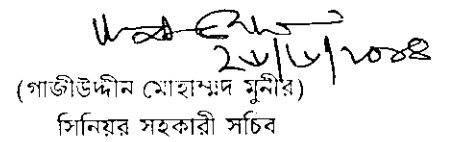 ২৮/৮/২০১৪
(গাজীউদ্দীন মোহাম্মদ মুনীর)
সিনিয়র সহকারী সচিব